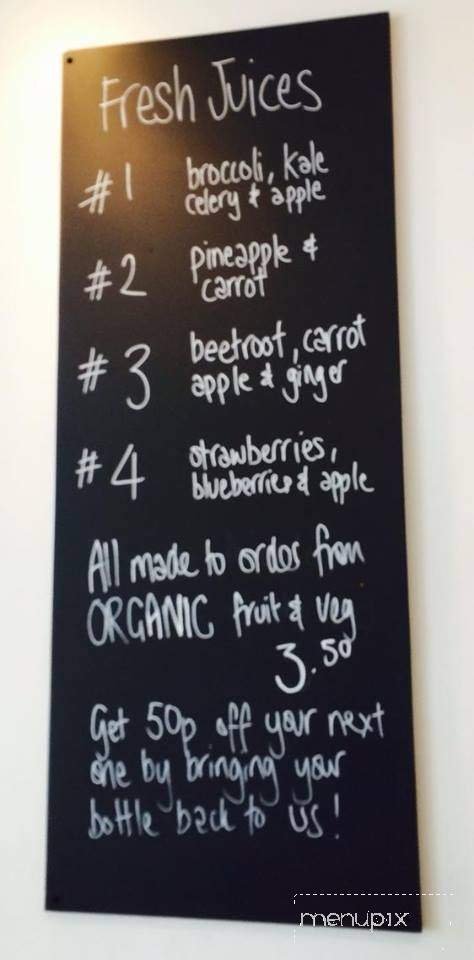 Fresh Juices
#1 broccoli, kale
celery & apple
#2 pineapple &
carrot
#3 beetroot, carrot
apple & ginger
#4 strawberries,
blueberries & apple
All made to order from
ORGANIC fruit & veg
3.50
Get 50p off your next
one by bringing your
bottle back to us!
menupix